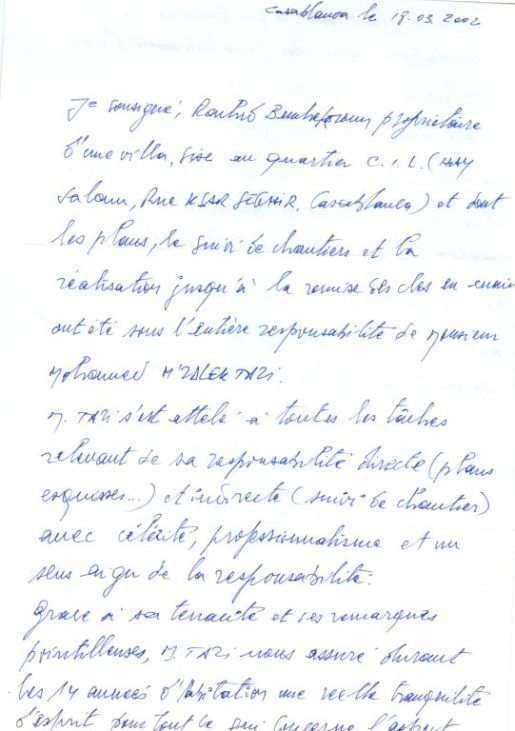 Casablanca le 18.03.2002
Je soussigné, Rachid propriétaire
d'une villa, sise au quartier C.I.L. (HAY
Salam, Rue KSAR SEGHIR, Casablanca) et dont
les plans, le suivi de chantiers et la
réalisation jusqu'à la remise des cles en main
ont été sous l'entière responsabilité de Monsieur
Mohamed TAZI.
M. TAZI s'est attelé à toutes les tâches
relevant de sa responsabilité directe (plans
esquisses...) et indirecte (suivi de chantier)
avec célérité, professionnalisme et un
sens aigu de la responsabilité.
Grace à sa tenacité et ses remarques
pointilleuses, M. TAZI nous assuré durant
les 14 années d'habitation une reelle tranquilité
d'esprit pour tout ce qui concerne l'aspect